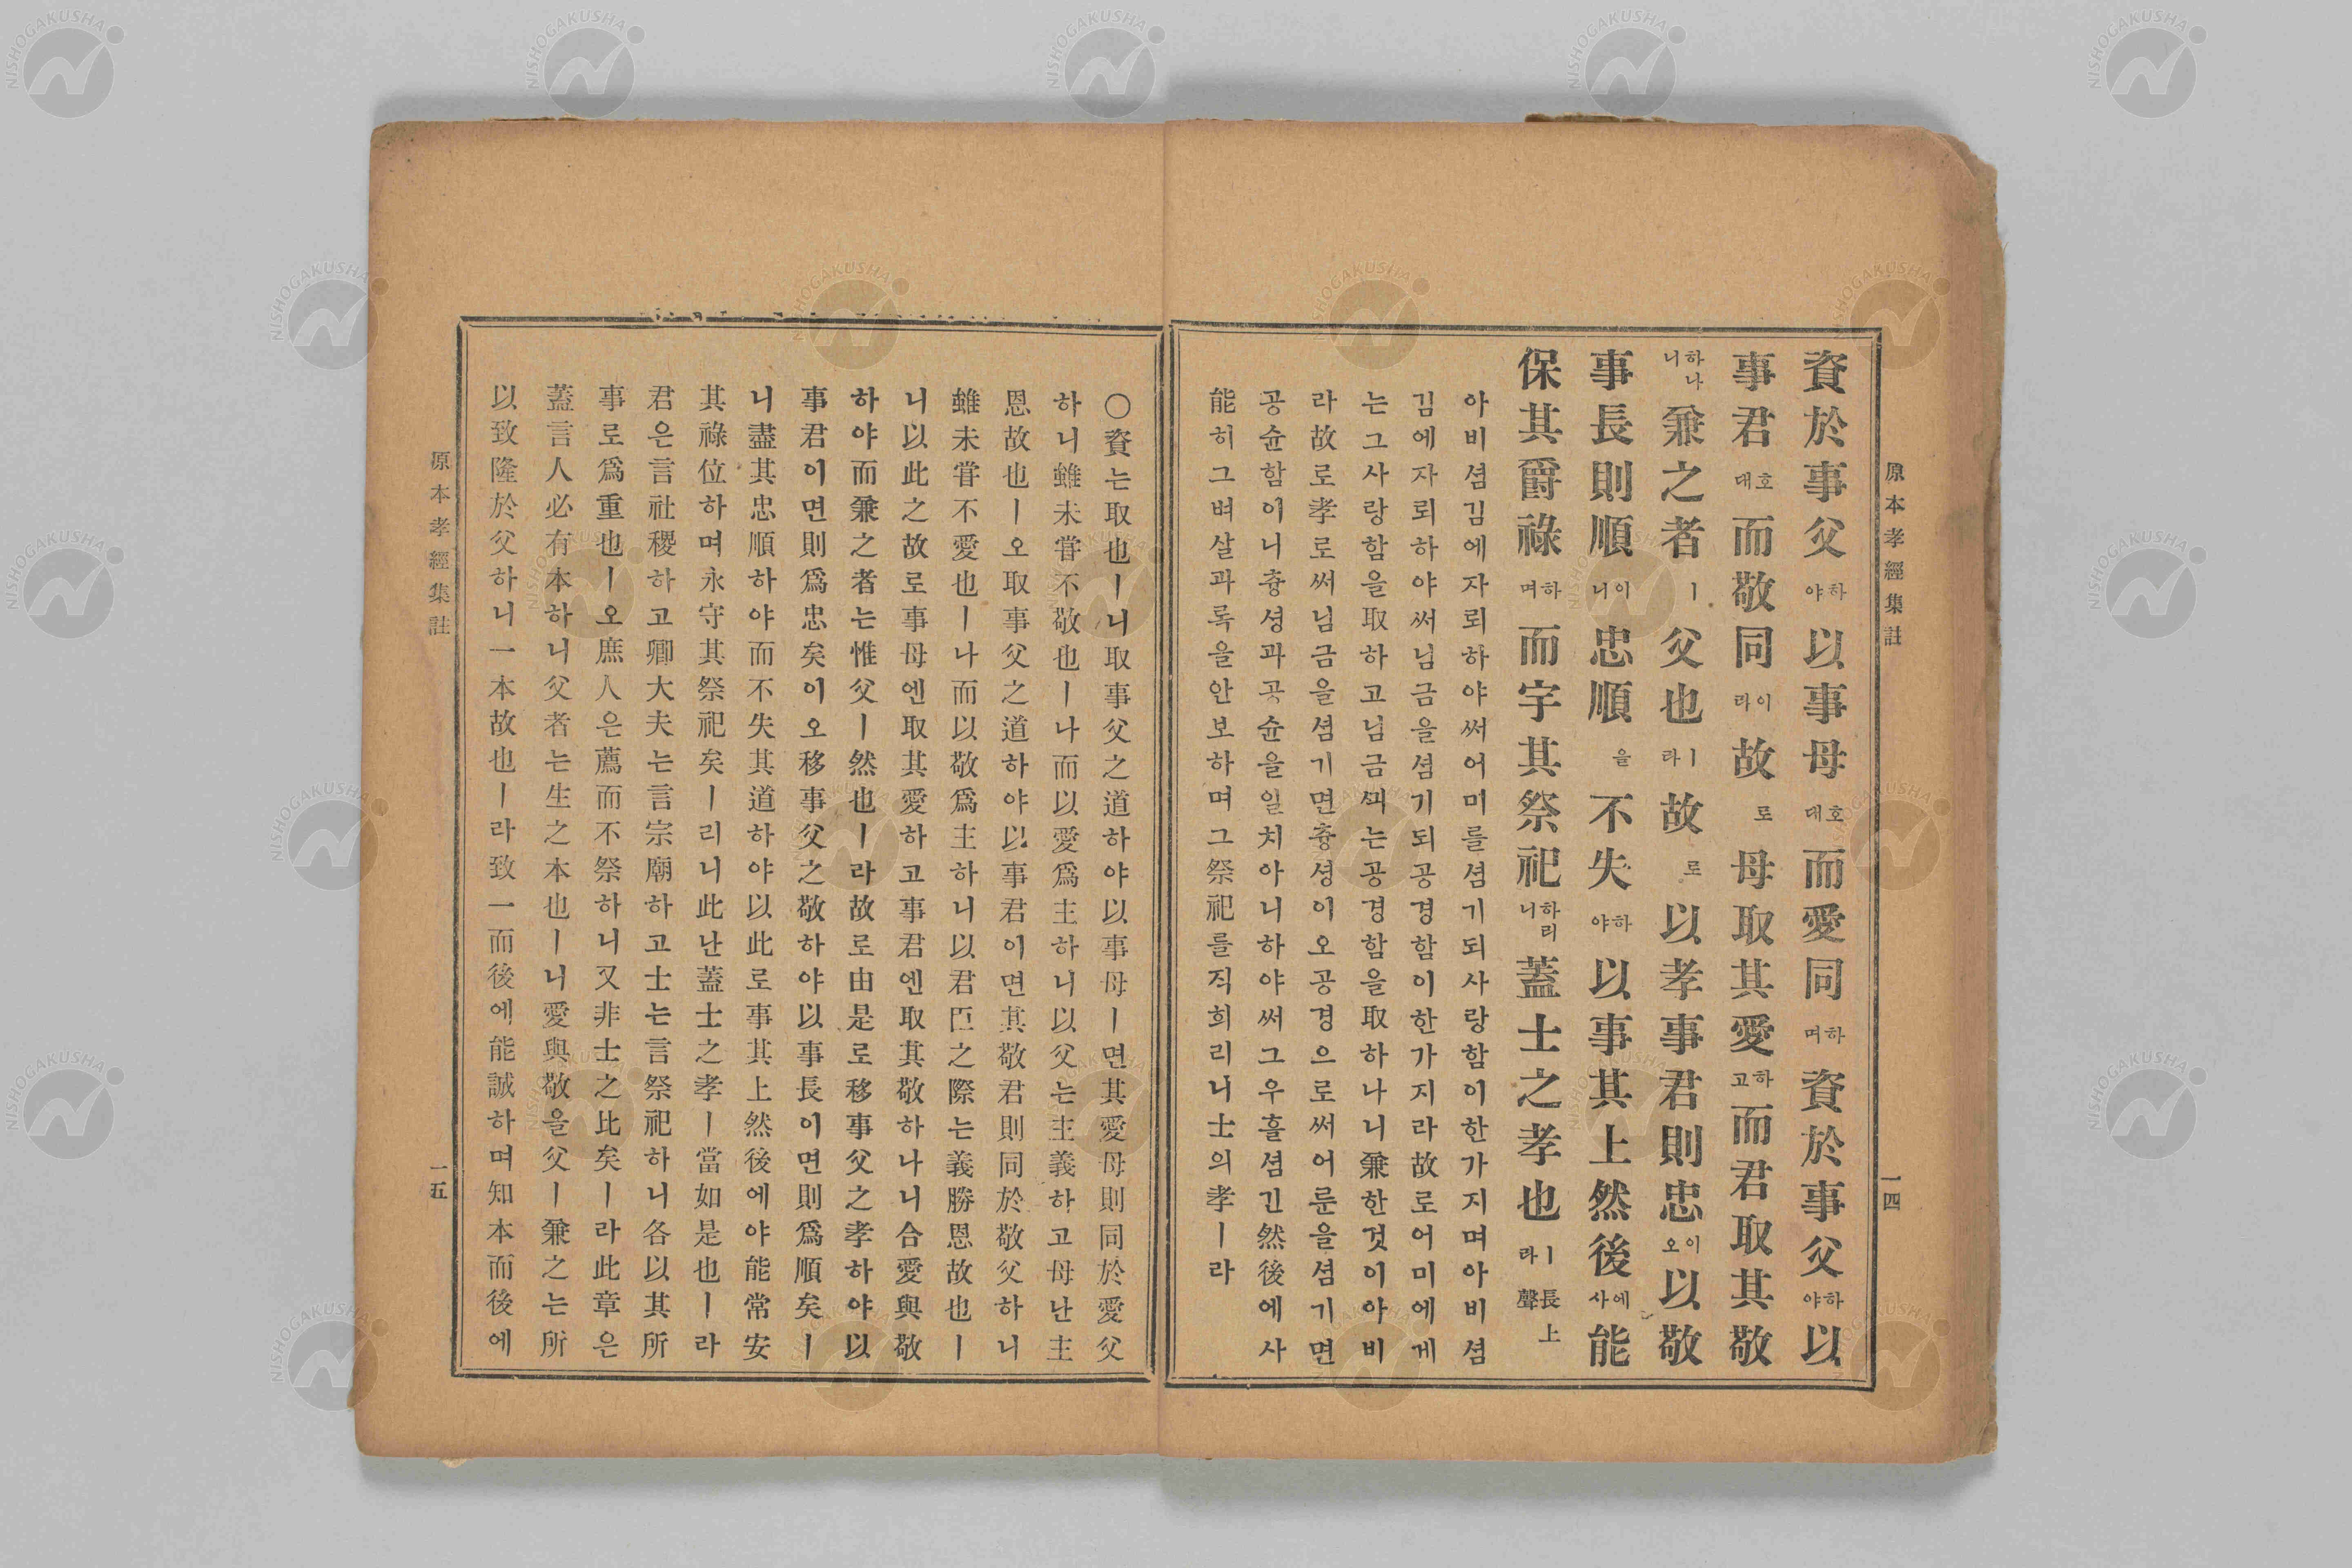 原本孝經集註 一四
資於事父하야以事母호대而愛同하며資於事父하야以
事君호대而敬同이라故로母取其愛하고而君取其敬
하나니兼之者ㅣ父也ㅣ라故로以孝事君則忠이오以敬
事長則順이니忠順을不失하야以事其上然後에사能
保其爵祿하며而守其祭祀하리니蓋士之孝也ㅣ라 長上聲
아비셤김에자뢰하야써어미를셤기되사랑함이한가지며아비셤
김에자뢰하야써님금을셤기되공경함이한가지라故로어미에게
는그사랑함을取하고님금끠는공경함을取하나니兼한것이아비
라故로孝로써님금을셤기면츙셩이오공경으로써어룬을셤기면
공슌함이니츙셩과공슌을일치아니하야써그우흘셤긴然後에사
能히그벼살과록을안보하며그祭祀를직희리니士의孝ㅣ라
〇資는取也ㅣ니取事父之道하야以事母ㅣ면其愛母則同於愛父
하니雖未甞不敬也ㅣ나而以愛爲主하니以父는主義하고母난主
恩故也ㅣ오取事父之道하야以事君이면其敬君則同於敬父하니
雖未甞不愛也ㅣ나而以敬爲主하니以君臣之際는義勝恩故也ㅣ
니以此之故로事母엔取其愛하고事君엔取其敬하나니合愛與敬
하야而兼之者는惟父ㅣ然也ㅣ라故로由是로移事父之孝하야以
事君이면則爲忠矣이오移事父之敬하야以事長이면則爲順矣ㅣ
니盡其忠順하야而不失其道하야以此로事其上然後에야能常安
其祿位하며永守其祭祀矣ㅣ리니此난蓋士之孝ㅣ當如是也ㅣ라
君은言社稷하고卿大夫는言宗廟하고士는言祭祀하니各以其所
事로爲重也ㅣ오庶人은薦而不祭하니又非士之比矣ㅣ라此章은
蓋言人必有本하니父者는生之本也ㅣ니愛與敬을父ㅣ兼之는所
以致隆於父하니一本故也ㅣ라致一而後에能誠하며知本而後에
原本孝經集註 一五